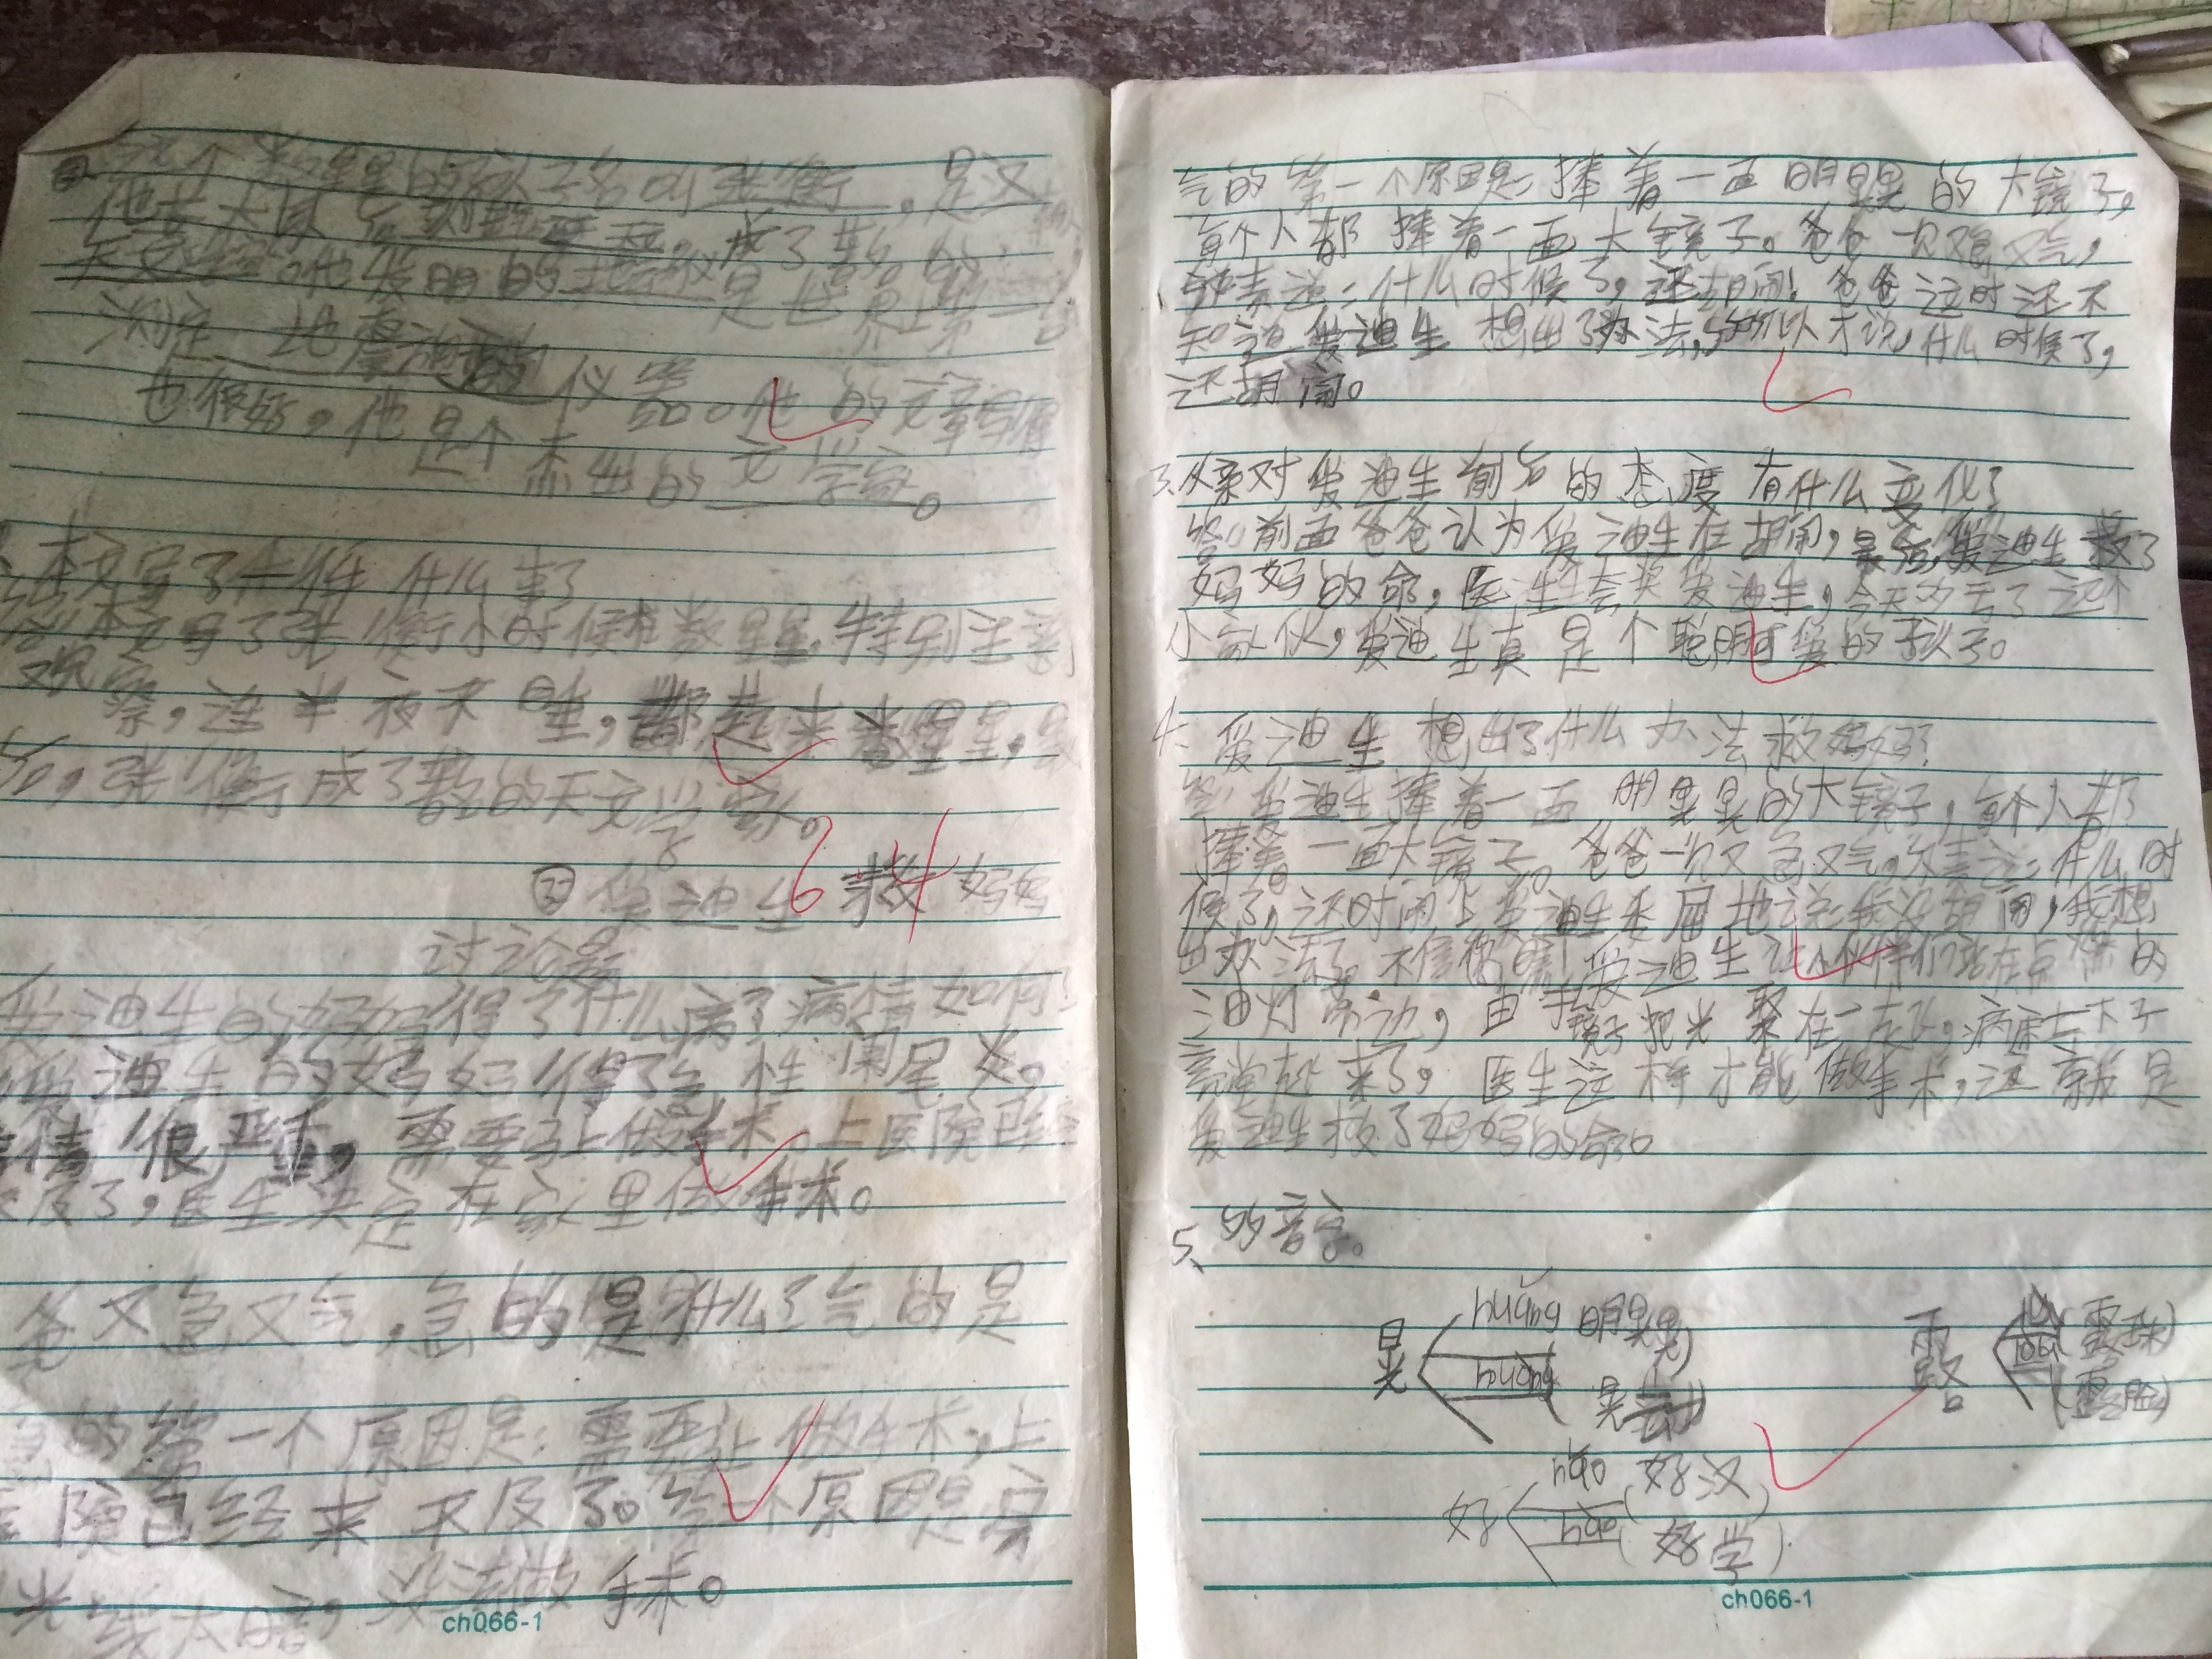 这个数星星的孩子名叫张衡,是汉
他长大以后刻苦,成了著名的
天文学家。他发明的地动仪是世界上第一
测定地震的仪器。他的文章写得
也很好,他是个杰出的文学家。
本文写了一件什么事?
答:本文写了张衡小时候在数星星,特别注意
观察,连半夜不睡,都起来看星星,最
后,张衡成了著名的天文学家。
爱迪生救妈妈
64
讨论题
爱迪生的妈妈得了什么病?病情如何?
爱迪生的妈妈得了急性阑尾炎。
病情很严重,需要马上做手术。上医院已经
来不及了,医生决定在家里做手术。
爸又急又气,急的是什么?气的是
急的第一个原因是:需要马上做手术,上
医院已经来不及了。另一个原因是家
光线太暗,没法做手术。
ch066-1
气的第一个原因是:捧着一面明晃晃的大镜子,
每个人都捧着一面大镜子。爸爸一见又急又气,
责说:什么时候了,还胡闹!爸爸这时还不
知道爱迪生想出了办法,所以才说什么时候了,
还胡闹。
3.父亲对爱迪生前后的态度有什么变化?
答:前面爸爸认为爱迪生在胡闹,最后,爱迪生救了
妈妈的命,医生夸奖爱迪生,今天多亏了这个
小家伙,爱迪生真是个聪明可爱的孩子。
4、爱迪生想出了什么办法救妈妈?
答:爱迪生捧着一面明晃晃的大镜子,每个人都
捧着一面大镜子。爸爸一见又急又气,斥责说:什么时
候了,还胡闹!爱迪生委屈地说:我没胡闹,我想
出办法了。不信您瞧!爱迪生让小伙伴们站在点燃的
油灯旁边,由于镜子把光聚在一起,病床上一下子
亮堂起来了,医生这样才能做手术,这就是
爱迪生救了妈妈的命。
5、多音字。
晃 huǎng 明晃晃)
huàng
露 lù(露珠)
lòu(露脸)
好 hǎo(好汉)
hào(好学)
ch066-1